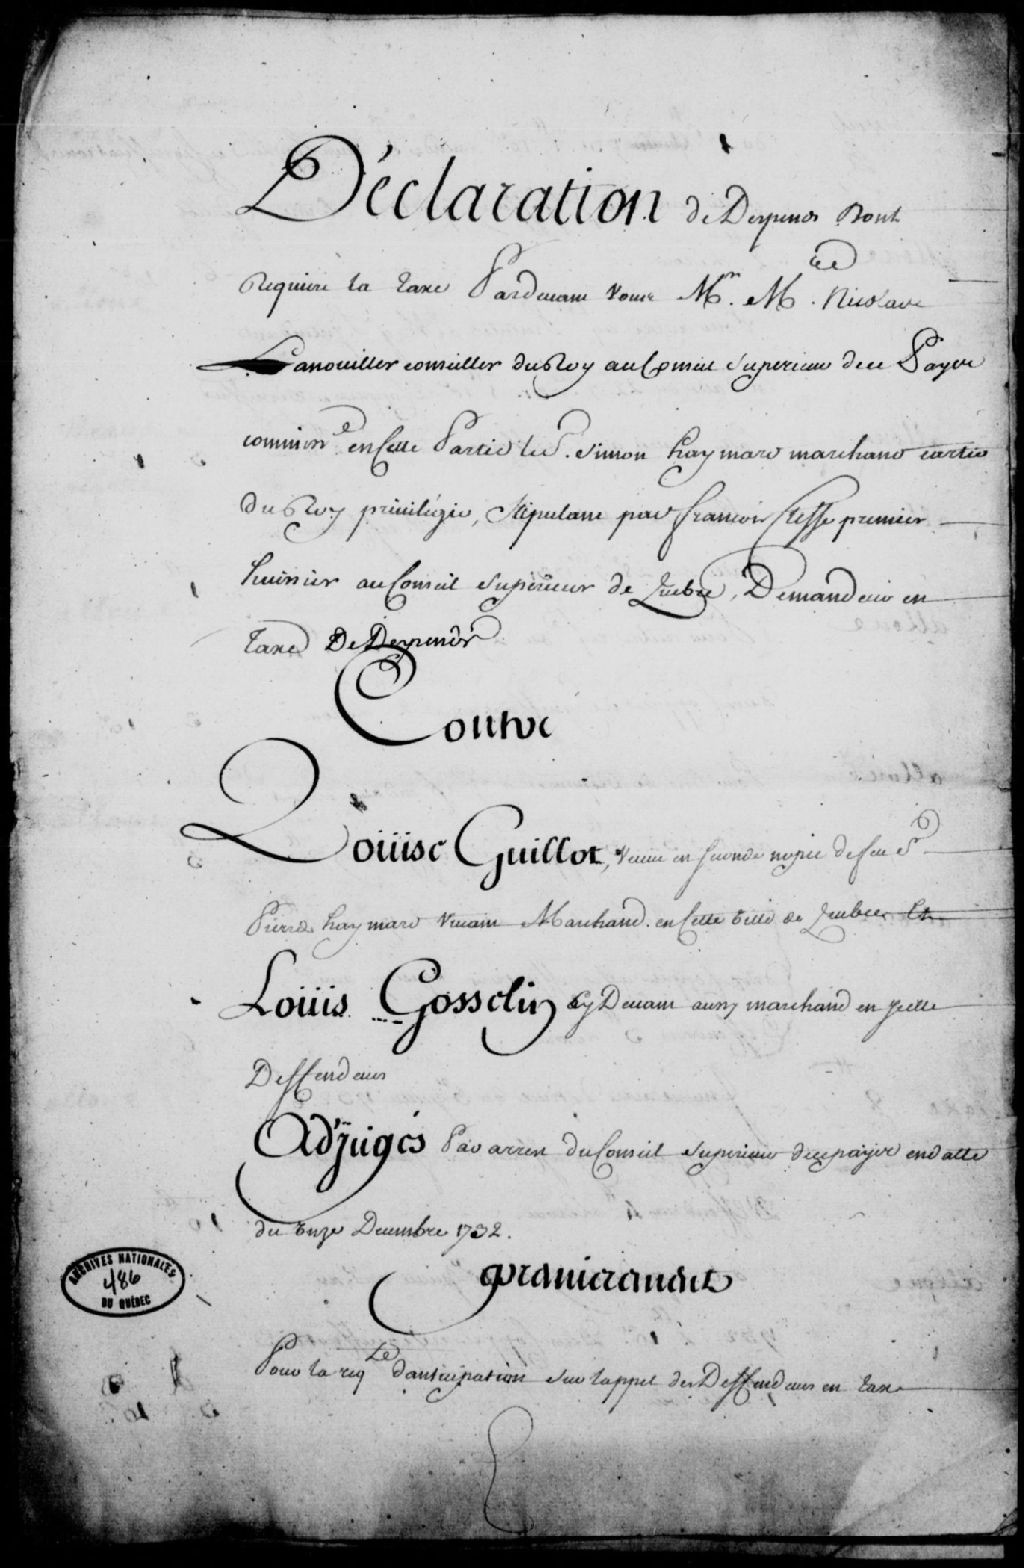 Déclaration de Depens Dont
Requiere la taxe Pardevant vous Mr. Me. Nicolas
Lanouiller conseiller du Roy au Conseil Superieur de ce Paÿs
commisre en Cette Partie le Sr. Simon haymard marchand cartier
du Roy privilégié, stipulant par françois Clesse premier
huissier au Conseil Superieur de Quebec, Demandeur en
taxe De Depens
Contre
Loüise Guillot, veuve en seconde nopce de feu Sr
Pierre haymard vivant Marchand en Cette ville de Quebec Et
Loüis Gosselin Cy Devant aussy marchand en icelle
Deffendeurs
Adjugés Par arrest du Conseil Superieur de ce païs en datte
du Onze Decembre 1732.
Premierement
Pour la reqte d'anticipation sur l'appel des Deffendeurs en taxe
ARCHIVES NATIONALES
486
DU QUÉBEC